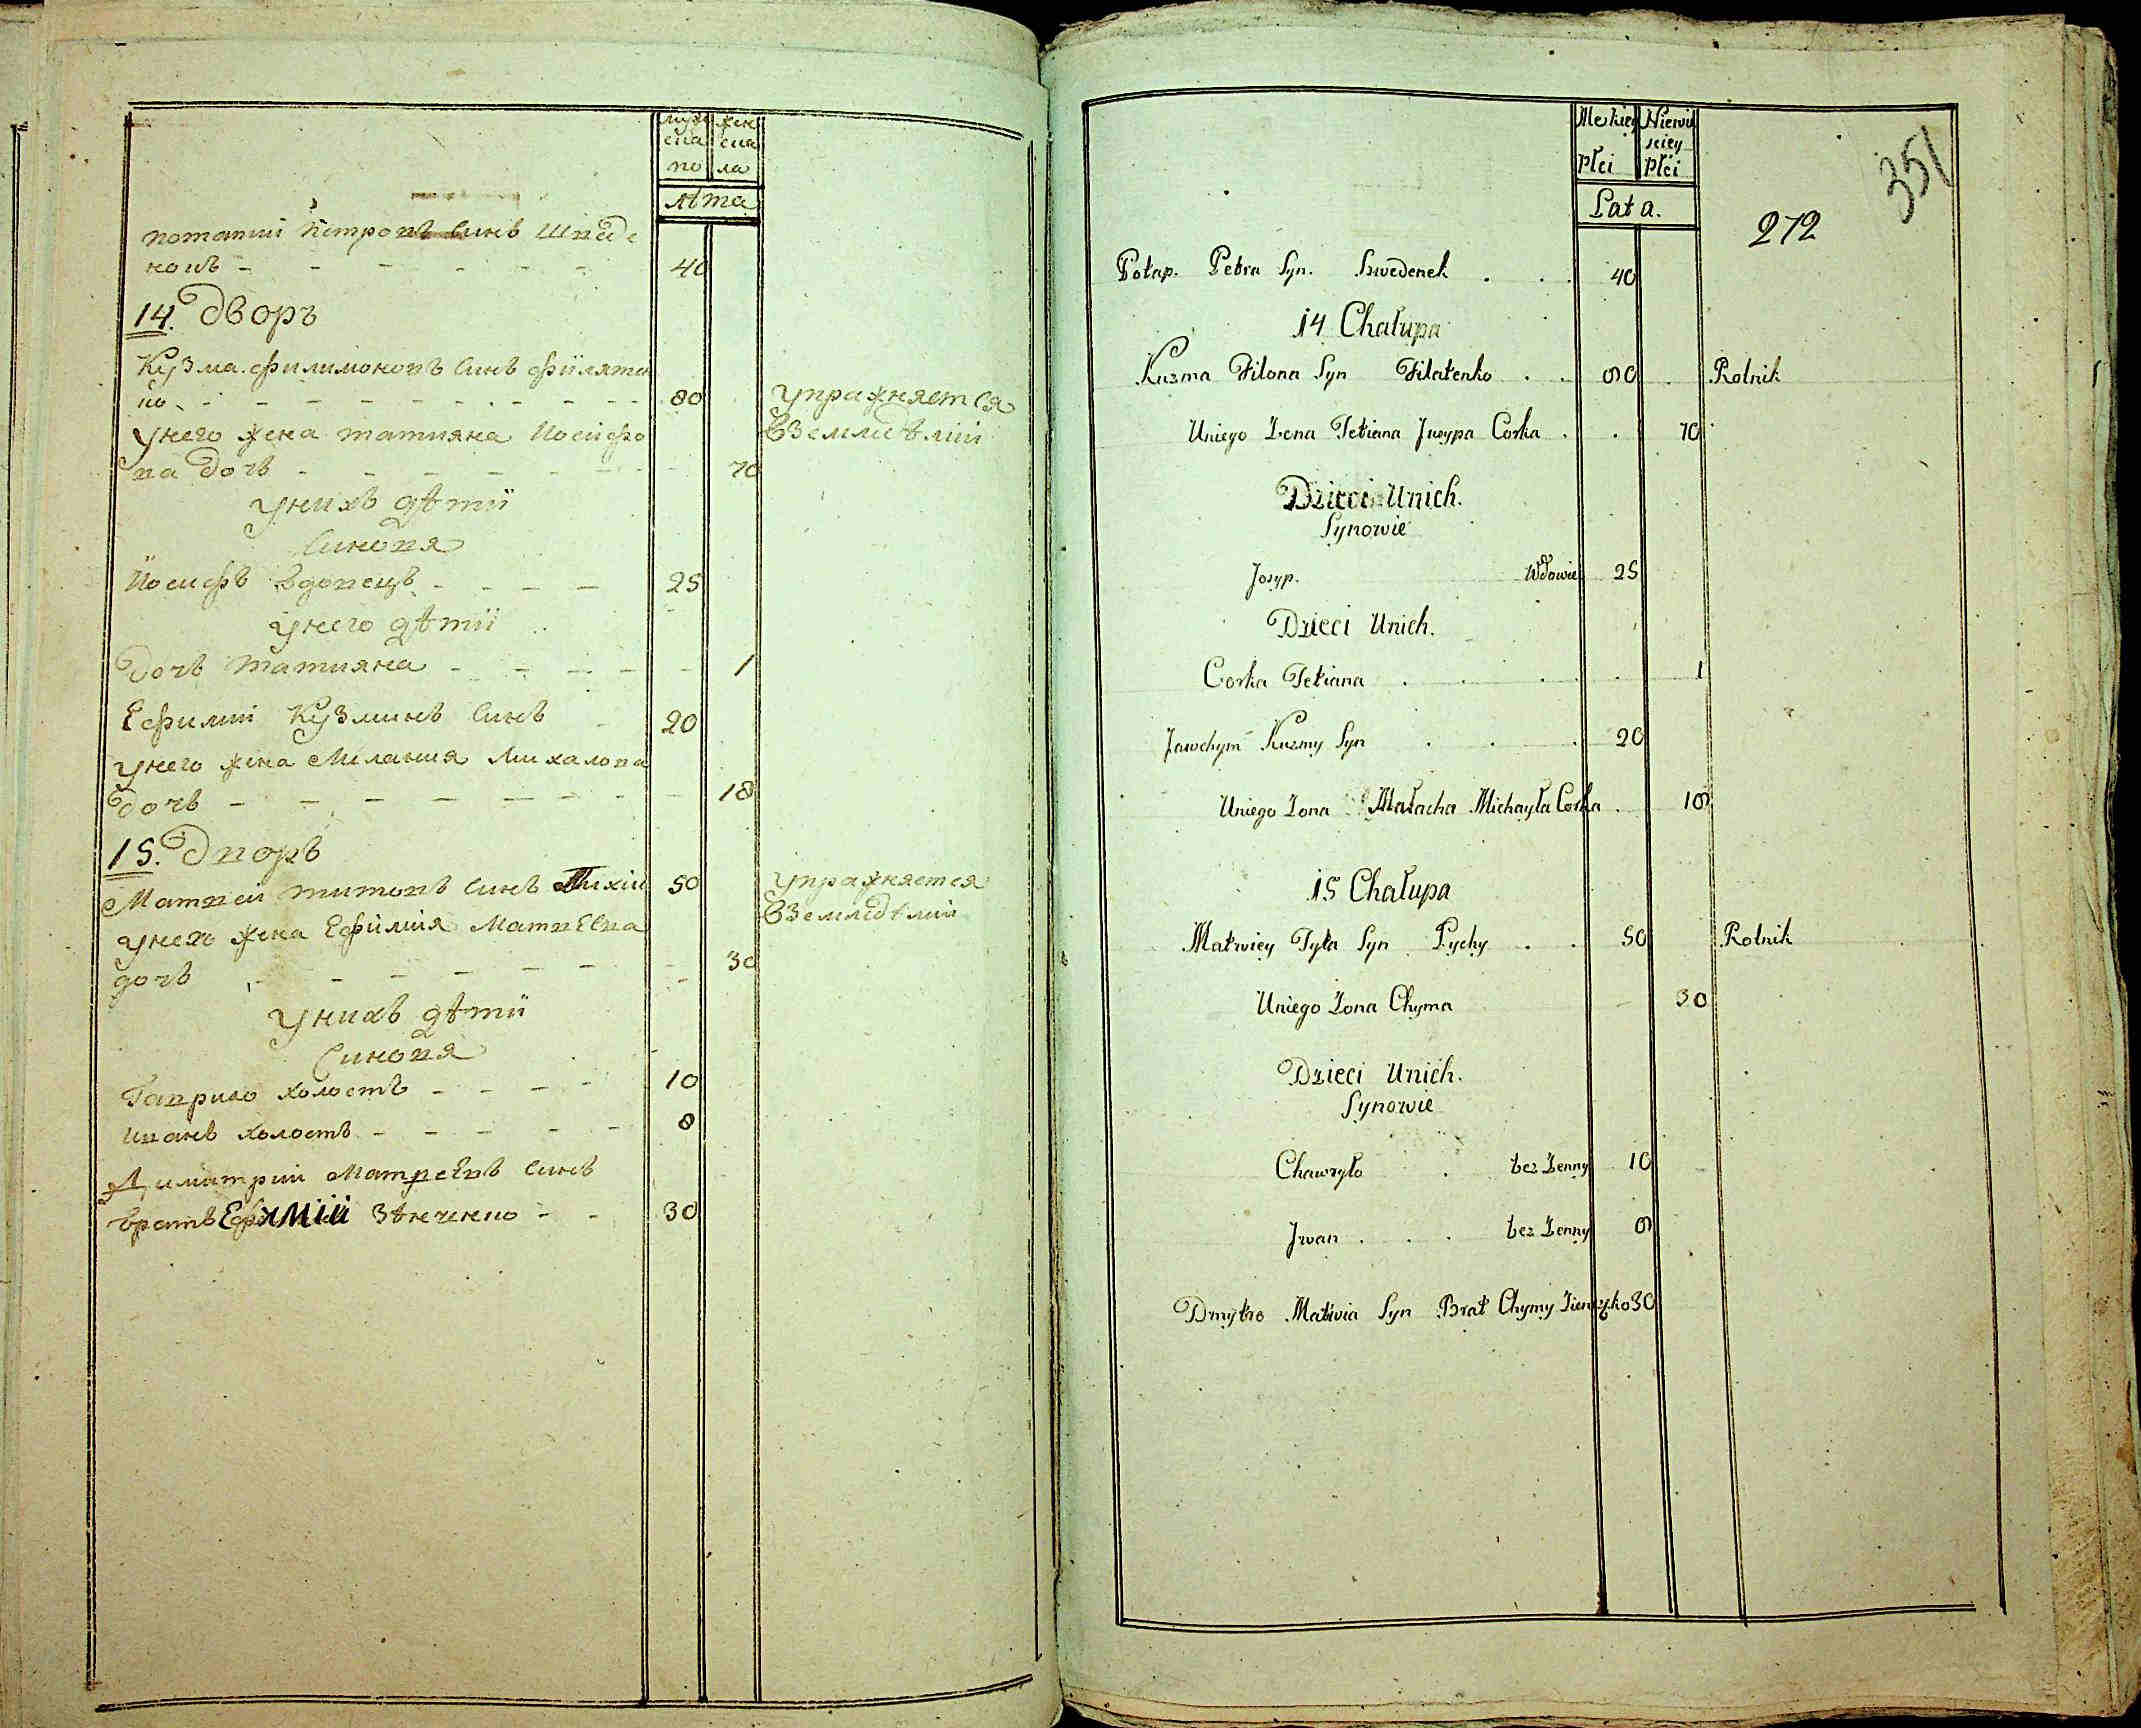 мужеска по
женска ла
лѣта
потапий петровъ синъ шведе
нокъ 40
14. Дворъ
Кузма филимоновъ синъ филяте
нко 80 упражняется
унего жена татияна иосифо взѣмледѣлии
ва дочъ 70
унихъ дѣтиї
синовя
Иосифъ вдовецъ 25
унего дѣтиї
дочъ татияна 1
Ефимий Кузминъ синъ 20
унего жена Мелания Михалова
дочъ 18
15. Дворъ
Матвей титовъ синъ Тихий 50 упражняется
унего жена Ефимия Матвевна взѣмледѣлии
дочъ 30
унихъ дѣтиї
синовя
Гаврило холостъ 10
иванъ холостъ 8
Димитрий Матвеевъ синъ
братъ Ефимїи 30
Męskiey Płci
Niewieskiey Płci
Lata.
351
272
Potap. Petra Syn. Szwedenek 40
14 Chałupa
Kuzma Filona Syn Filatenko 80 Rolnik
Uniego Żona Tetiana Jusypa Corka 70
Dzieci Unich.
Synowie
Josyp. Wdowiec 25
Dzieci Unich.
Corka Tetiana 1
Jawchym Kuzmy Syn 20
Uniego Żona Małacha Michayła Corka 18
15 Chałupa
Matwiey Tyta Syn Tychy 50 Rolnik
Uniego Żona Chyma 30
Dzieci Unich.
Synowie
Chawryło bez Żenny 10
Jwan bez Żenny 8
Dmytro Matwia Syn Brat Chymy 30